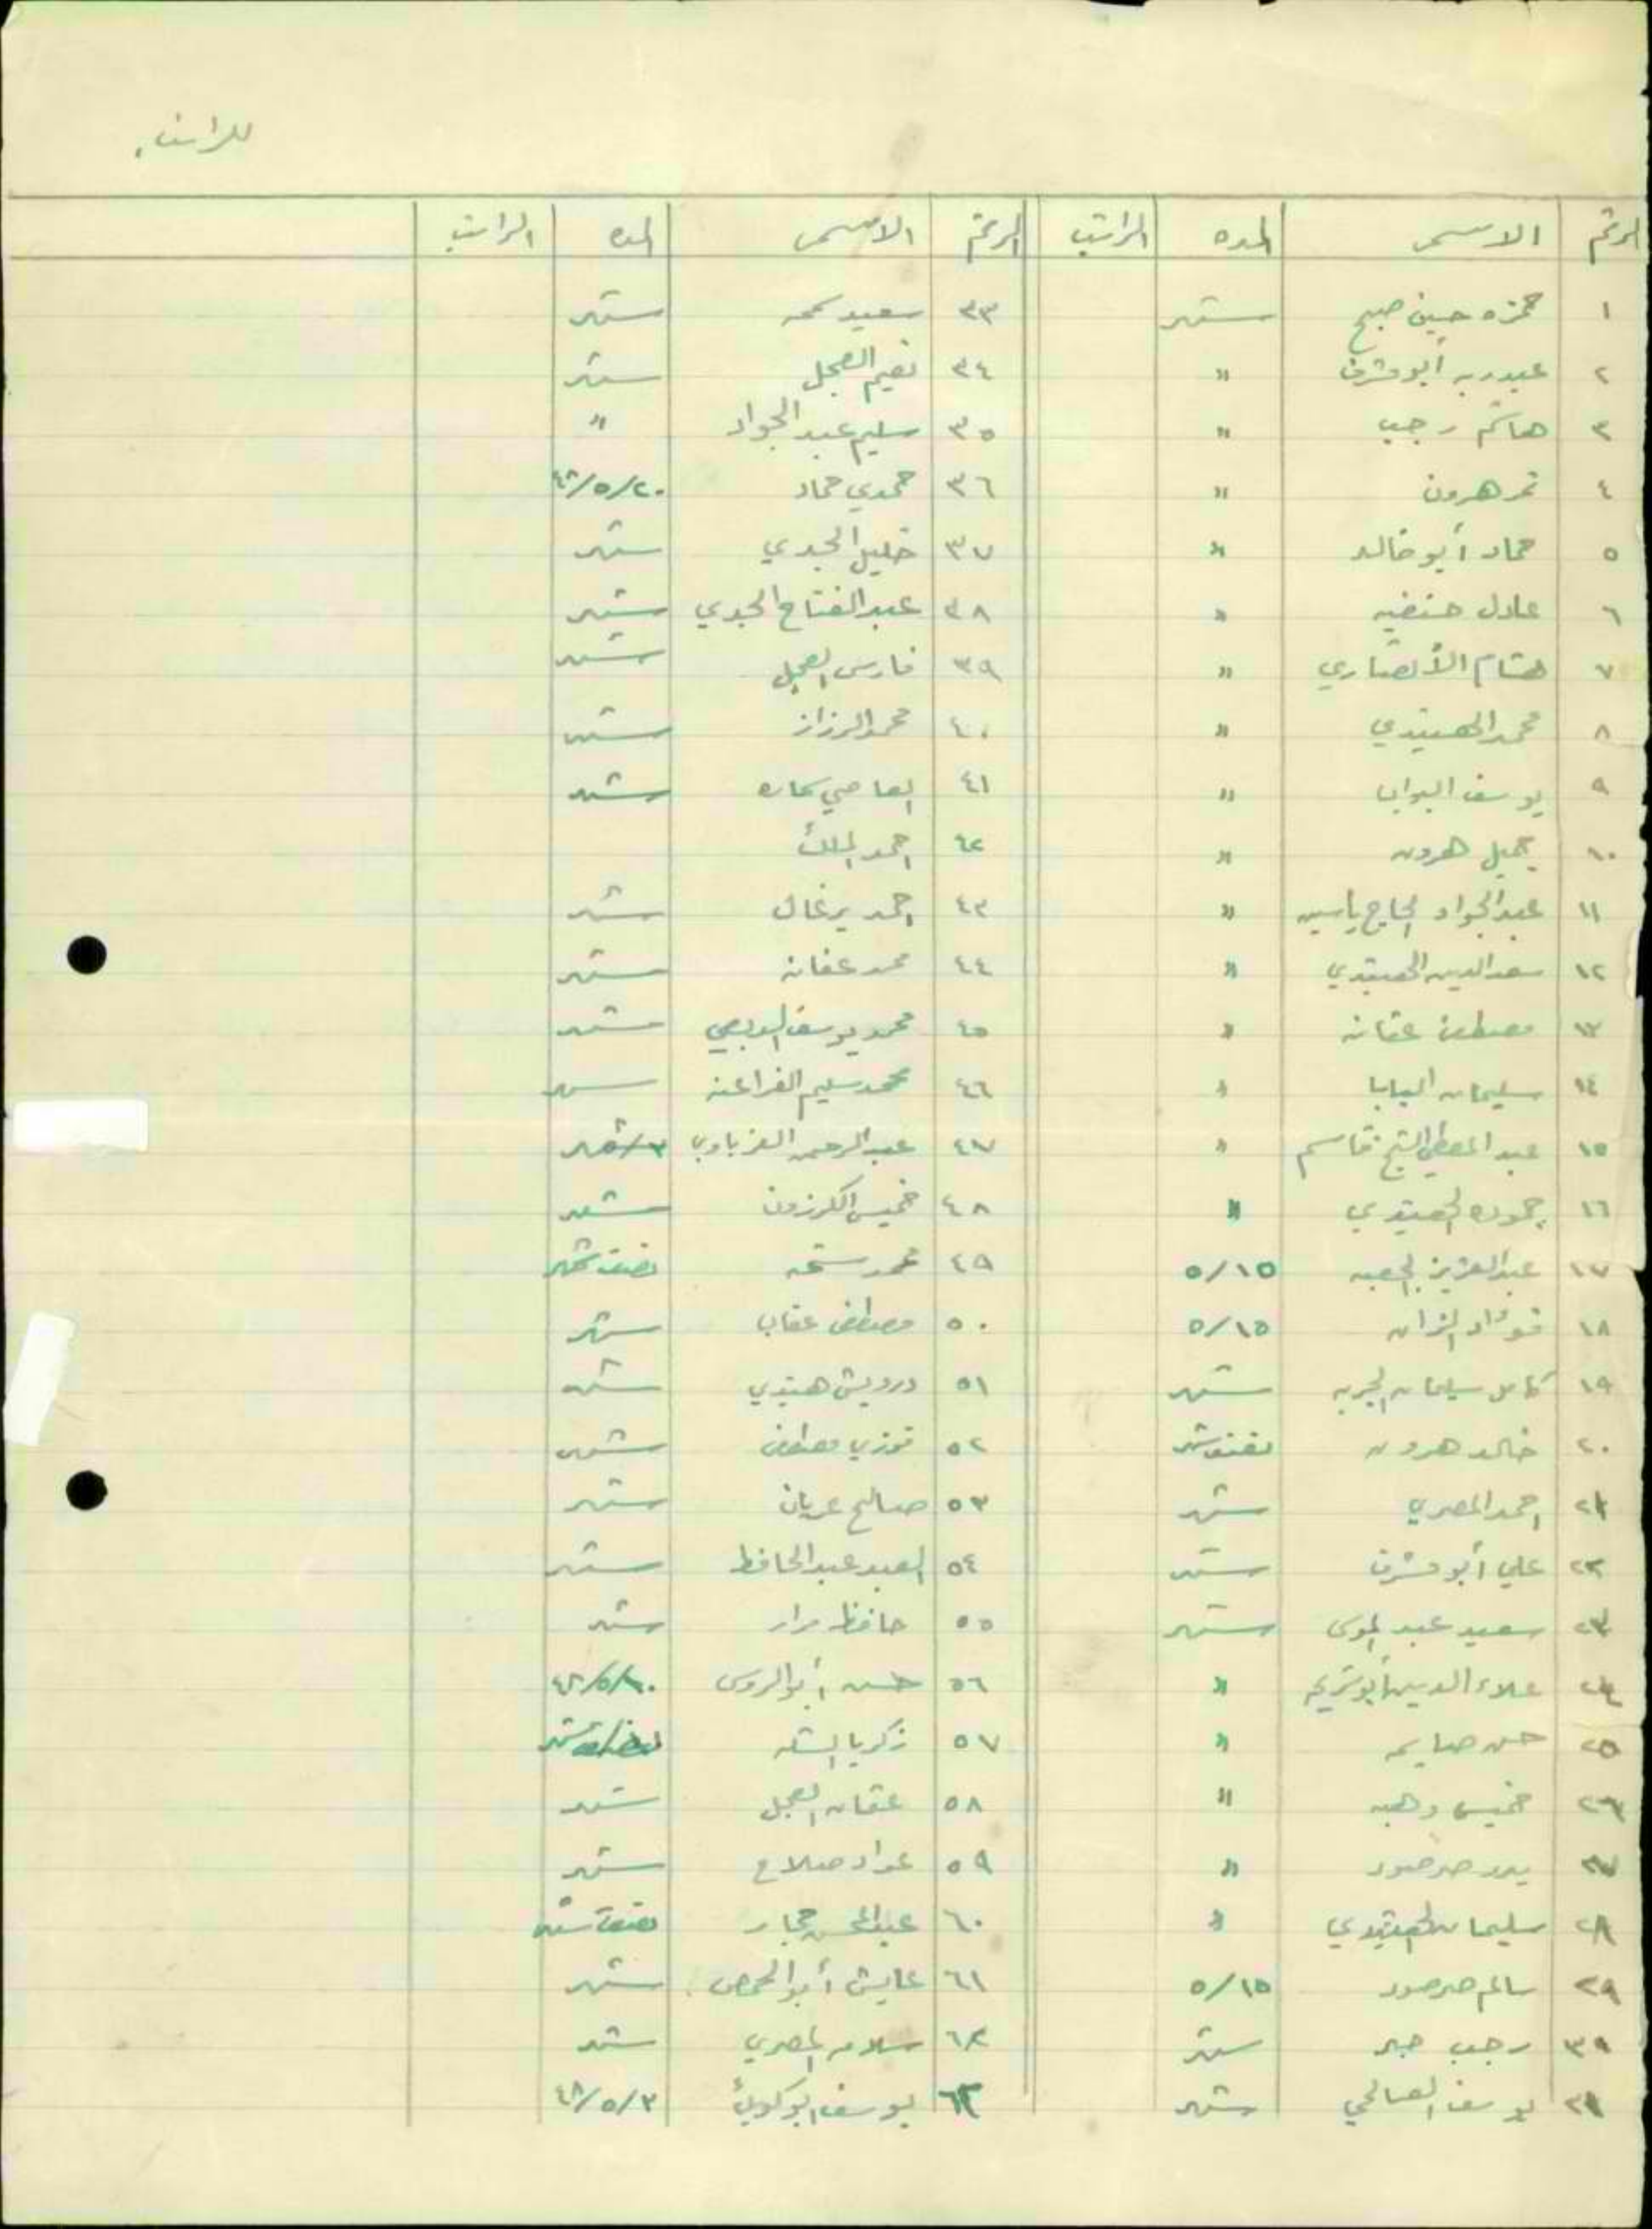 للراتب.
الرقم الاسم المده الراتب الرقم الاسم المده الراتب
١ حمزه حسين صبح شهر ٣٣ سعيد شهر
٢ عبدربه أبو مشرف " ٣٤ نعيم العجل شهر
٣ هاشم رجب " ٣٥ سليم عبد الجواد "
٤ نمر هرون " ٣٦ حمدي حماد ٤٨/٥/٢٠
٥ حماد أبو خالد " ٣٧ خليل الجدي شهر
٦ عادل حنفيه " ٣٨ عبد الفتاح الجدي شهر
٧ هشام الأنصاري " ٣٩ فارس العجل شهر
٨ محمد الهنيدي " ٤٠ محمد الرزاز شهر
٩ يوسف البواب " ٤١ العاصي شهر
١٠ جميل هرون " ٤٢ احمد الملك
١١ عبد الجواد الحاج ياسين " ٤٣ احمد برغال شهر
١٢ سعد الدين الهنيدي " ٤٤ محمد عفانه شهر
١٣ مصطفى عفانه " ٤٥ محمد يوسف شهر
١٤ سليمان البابا " ٤٦ محمد سليم الفراعنه شهر
١٥ عبد المعطي الشيخ قاسم " ٤٧ عبد الرحمن العزباوي شهر
١٦ حموده الهنيدي " ٤٨ خميس الكرزون شهر
١٧ عبد العزيز الجعبه ٥/١٥ ٤٩ محمد نصف شهر
١٨ فؤاد ٥/١٥ ٥٠ مصطفى عقاب شهر
١٩ كامل سليمان شهر ٥١ درويش هنيدي شهر
٢٠ خالد هرون نصف شهر ٥٢ فوزي مصطفى شهر
٢١ احمد المصري شهر ٥٣ صالح عريان شهر
٢٢ علي أبو مشرف شهر ٥٤ العبد عبد الحافظ شهر
٢٣ سعيد عبد الموسى شهر ٥٥ حافظ مراد شهر
٢٤ علاء الدين أبو شريح " ٥٦ حسن أبو الروس ٤٨/٥/١٠
٢٥ حسن صايمه " ٥٧ زكريا شهر
٢٦ خميس وهبه " ٥٨ عثمان العجل شهر
٢٧ بدر صرصور " ٥٩ عواد صلاح شهر
٢٨ سليمان الهنيدي " ٦٠ عبد المحسن حجار نصف شهر
٢٩ سالم صرصور ٥/١٥ ٦١ عايش أبو الحمص شهر
٣٠ رجب جبر شهر ٦٢ سلامه المصري شهر
٣١ يوسف الصالحي شهر ٦٣ يوسف ابو كويك ٤٨/٥/٣